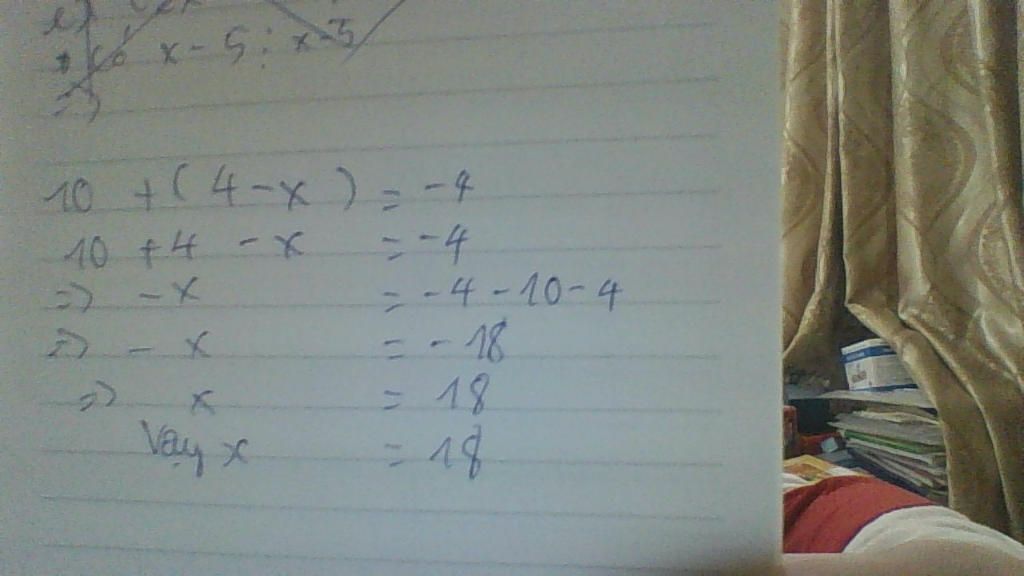 x - 5 : x - 5
=>
10 + ( 4 - x ) = -4
10 + 4 - x = -4
=> - x = -4 - 10 - 4
=> - x = - 18
=> x = 18
Vậy x = 18